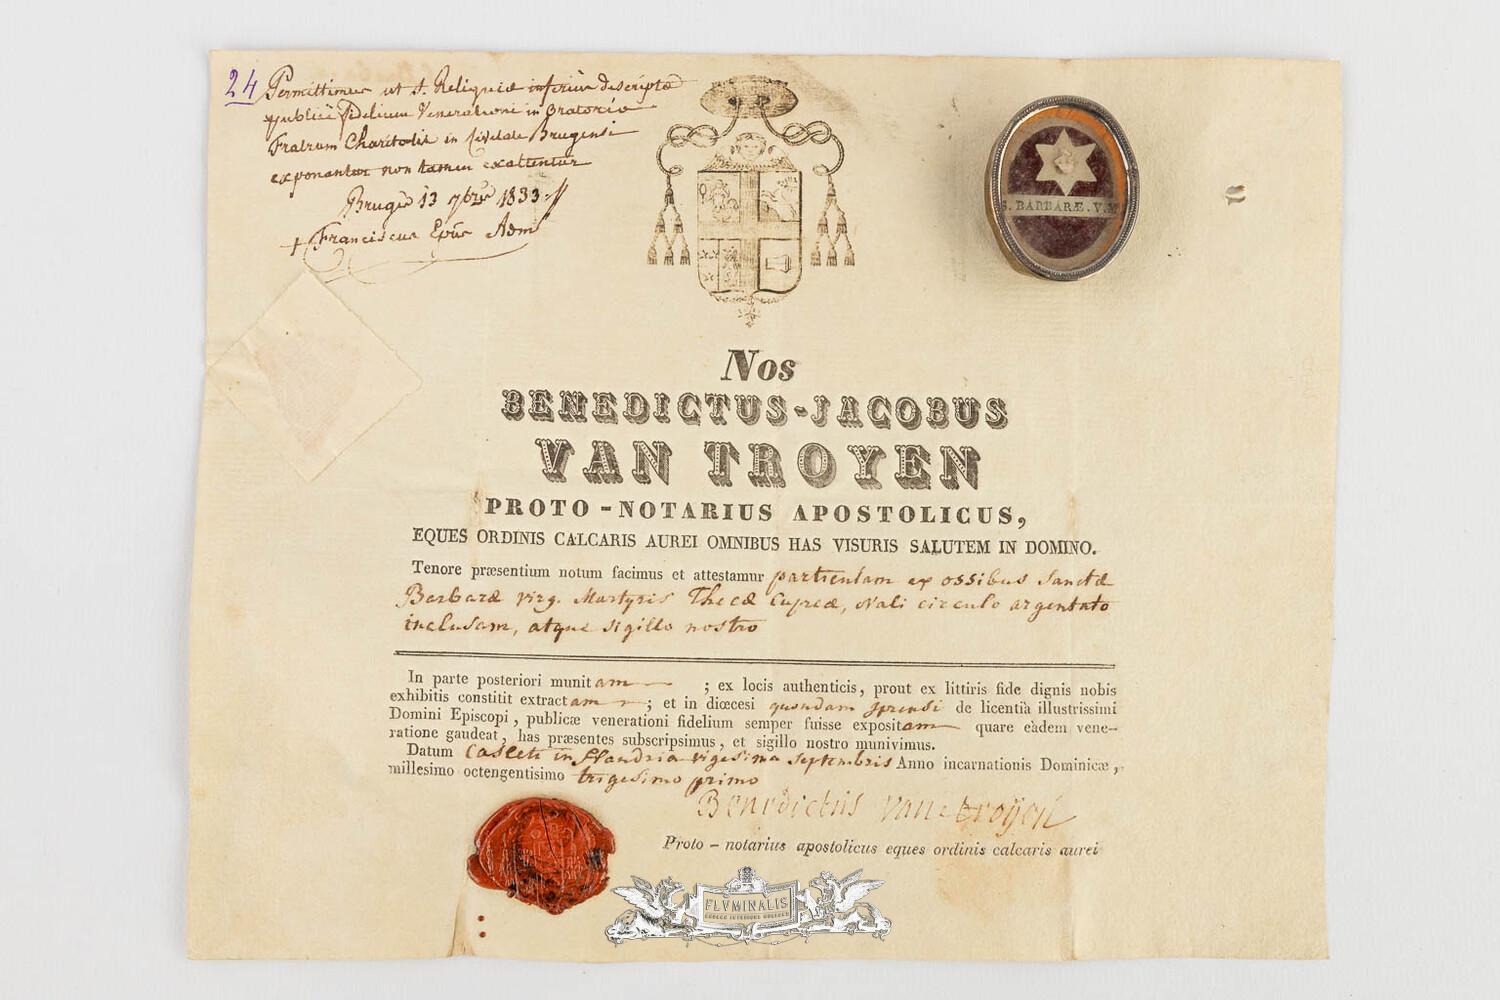 24 Permittimus ut S. Reliquiæ inferiùs descriptæ
publicæ fidelium Venerationi in Oratorio
Fratrum Charitatis in Civitate Brugensi
exponantur non tamen
Brugis 13 9bris 1833
+ Franciscus Epũs Adm
S. BARBARÆ. V. M
Nos
BENEDICTUS-JACOBUS
VAN TROYEN
PROTO-NOTARIUS APOSTOLICUS,
EQUES ORDINIS CALCARIS AUREI OMNIBUS HAS VISURIS SALUTEM IN DOMINO.
Tenore præsentium notum facimus et attestamur particulam ex ossibus Sanctæ
Barbaræ virg. Martyris Thecæ Cupreæ, ovali circulo argentato
inclusam, atque sigillo nostro
In parte posteriori munitam ; ex locis authenticis, prout ex littiris fide dignis nobis
exhibitis constitit extractam ; et in diœcesi quondam Iprensi de licentiâ illustrissimi
Domini Episcopi, publicæ venerationi fidelium semper fuisse expositam quare eâdem vene-
ratione gaudeat, has præsentes subscripsimus, et sigillo nostro munivimus.
Datum Casleti in Flandria vigesima septembris Anno incarnationis Dominicæ,
millesimo octengentisimo trigesimo primo
Benedictus van troÿen
Proto-notarius apostolicus eques ordinis calcaris aurei
FLVMINALIS